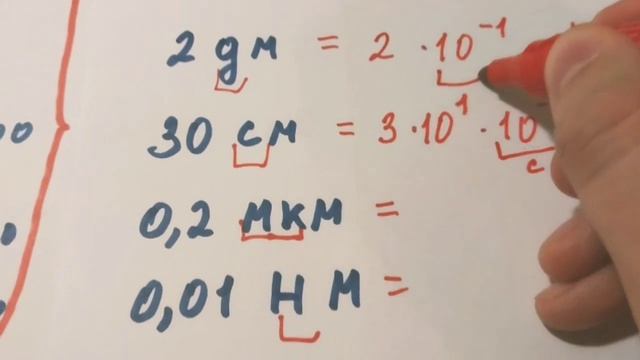 2 дм = 2 · 10⁻¹
30 см = 3 · 10¹ · 10
с
0,2 мкм =
0,01 нм =